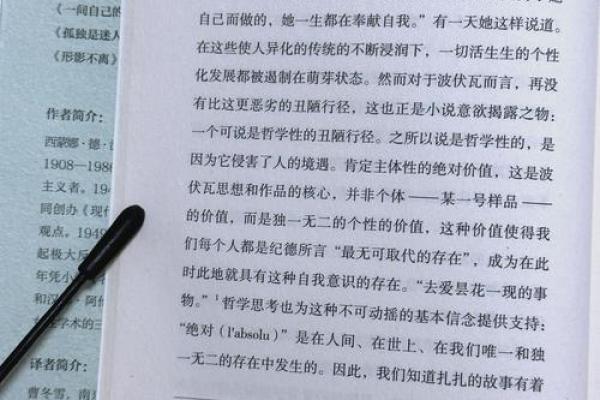 《一间自己的
《孤独是迷人
《形影不离》
作者简介：
西蒙娜·德·
1908—1986
主义者。194
同创办《现代
观点。1949
起极大反
年凭小
和汉
女性学术的三
译者简介：
曹冬雪，南京
自己而做的，她一生都在奉献自我。”有一天她这样说道。
在这些使人异化的传统的不断浸润下，一切活生生的个性
化发展都被遏制在萌芽状态。然而对于波伏瓦而言，再没
有比这更恶劣的丑陋行径，这也正是小说意欲揭露之物：
一个可说是哲学性的丑陋行径。之所以说是哲学性的，是
因为它侵害了人的境遇。肯定主体性的绝对价值，这是波
伏瓦思想和作品的核心，并非个体——某一号样品——
的价值，而是独一无二的个性的价值，这种价值使得我
们每个人都是纪德所言“最无可取代的存在”，成为在此
时此地就具有这种自我意识的存在。“去爱昙花一现的事
物。”1哲学思考也为这种不可动摇的基本信念提供支持：
“绝对（l'absolu）”是在人间、在世上、在我们唯一和独
一无二的存在中发生的。因此，我们知道扎扎的故事有着